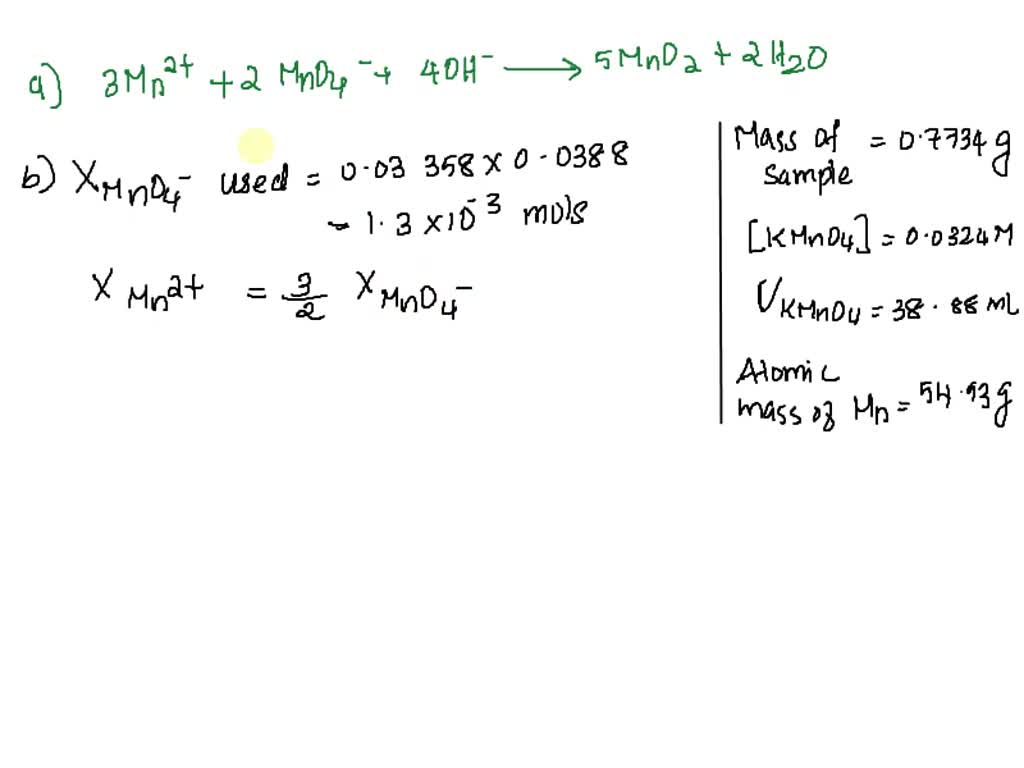 a) 3Mn²⁺ + 2 MnO₄⁻ + 4OH⁻ ⟶ 5MnO₂ + 2H₂O
b) X MnO₄⁻ used = 0.03 358 × 0.0388
= 1.3 × 10⁻³ mols
X Mn²⁺ = 3/2 X MnO₄⁻
Mass of = 0.7734 g
Sample
[KMnO₄] = 0.0324 M
V KMnO₄ = 38.88 mL
Atomic
mass of Mn = 54.93g